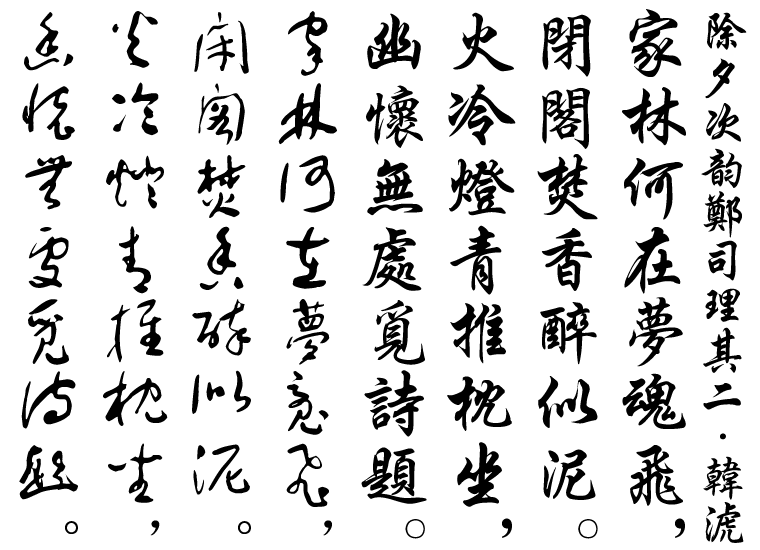 除夕次韵鄭司理其二·韓淲
家林何在夢魂飛，
閉閣焚香醉似泥。
火冷燈青推枕坐，
幽懷無處覓詩題。
家林何在夢魂飛，
閉閣焚香醉似泥。
火冷燈青推枕坐，
幽懷無處覓詩題。